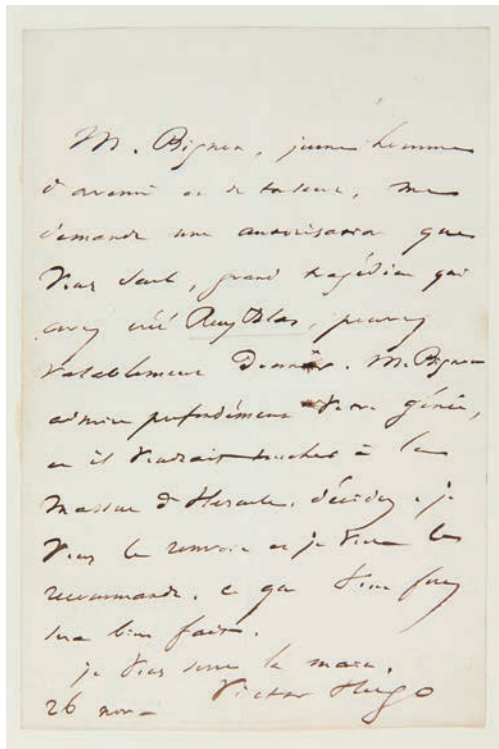 M. Bignon, jeune homme
d'avenir et de talent, me
demande une autorisation que
vous seul, grand tragédien qui
avez créé Ruy Blas, pouvez
valablement donner. M. Bignon
admire profondément votre génie,
et il voudrait toucher à la
massue d'Hercule. décidez. je
vous le renvoie et je vous le
recommande. ce que vous ferez
sera bien fait.
je vous serre la main.
Victor Hugo
26 nov.